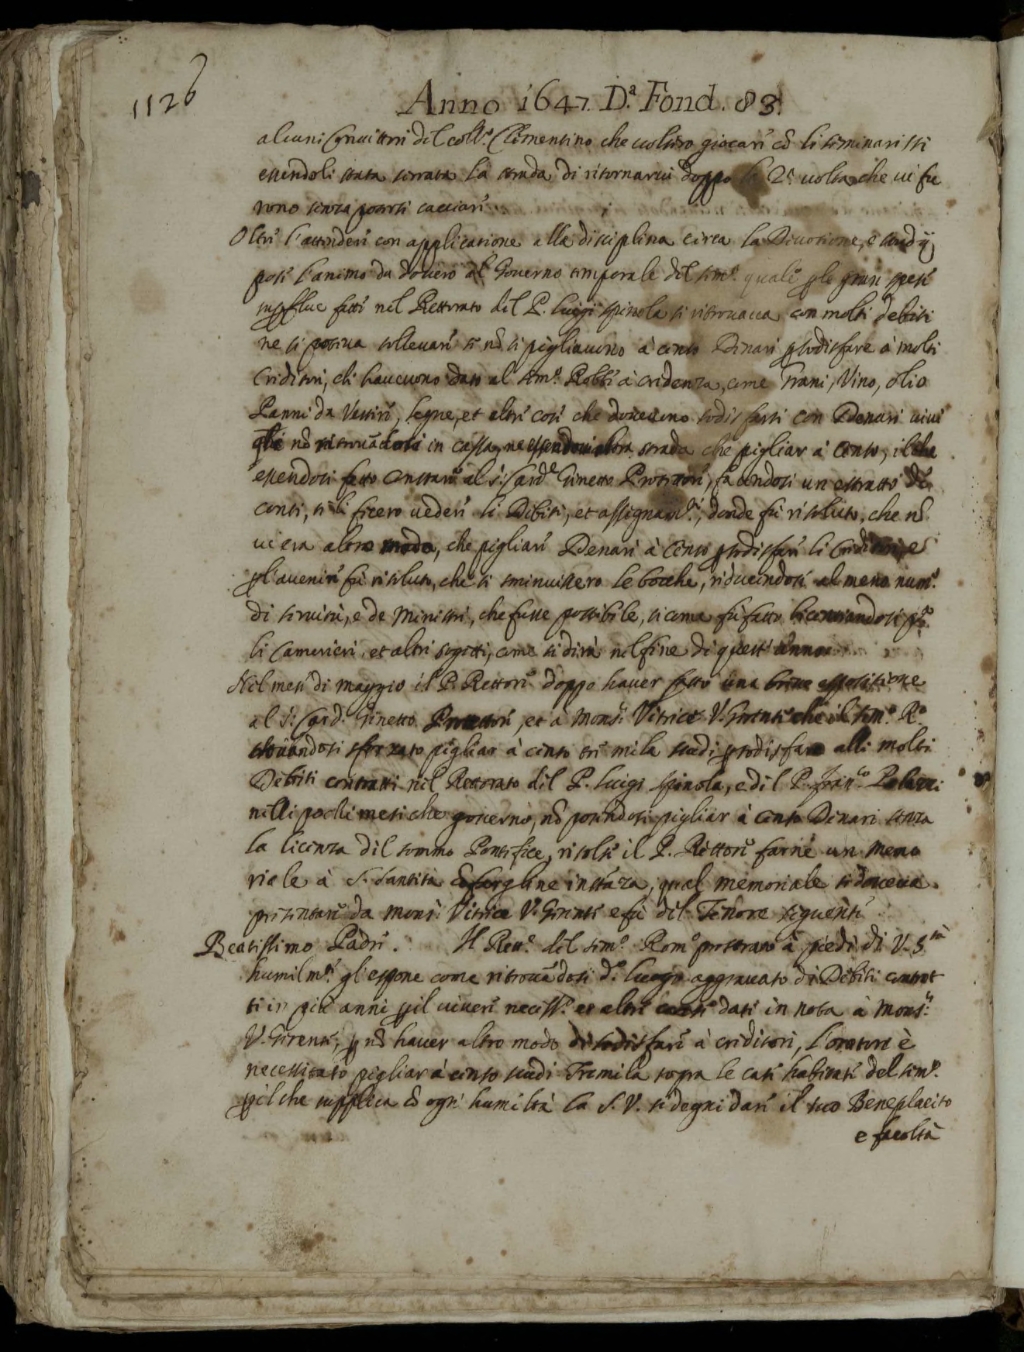 1126
Anno 1647. D.ª Fond. 83.
alcuni Convittori del Coll.º Clementino che volsero giocare cõ li seminaristi
essendoli stata serrata la strada di ritornarvi doppo la 2ª volta che vi fu
rono senza potersi cacciare.
Oltre l'attendere con applicatione alla disciplina circa la Divotione, e studÿ
pose l'animo da dovero al Governo temporale del sem.º quale p le gran spese
supflue fatte nel Rettorato del P. Luigi Spinola si ritrovava con molti debiti
ne si poteva sollevare se nõ si pigliavano à censo Denari p sodisfare à molti
Creditori, che havevano dato al sem.º Robbe à credenza, come Grani, Vino, olio
Panni da Vestire, legne, et altre cose che dovevano sodisfarsi con Denari vivi
quali nõ ritrovãdosi in cassa, ne essendovi altra strada che pigliar à Censo, il che
essendosi fatto constare al S. Card.le Ginetto Protettore, facendosi un estratto de
conti, se li fecero vedere li Debiti, et assegnam.ti, donde fù risoluto, che nõ
vi era altro modo, che pigliare Denari à Censo p sodisfare li Creditori, e
p l'avenire fù risoluto, che si sminuissero le bocche, riducendosi al meno num.º
di servitù, e de Ministri, che fusse possibile, si come fù fatto licentiandosi p.º
li Camerieri et altri soggetti, come si dirà nel fine di quest'Anno.
Nel mese di maggio il P. Rettore doppo haver fatto una breve espositione
al S. Card. Ginetto Protettore, et à Mons.r Vitrice V. Gerente che il sem.º R.º
trovandosi sforzato pigliar à censo tre mila scudi p sodisfare alli molti
Debiti contratti nel Rettorato del P. Luigi Spinola, e del P. Fran.co
nelli pochi mesi che governò, nõ potendosi pigliar à censo Denari senza
la licenza del sommo Pontefice, risolse il P. Rettore farne un memo
riale à S. Santità cõ fargliene instãza, qual memoriale si doveva
presentare da Mons.r Vitrice V. Gerente e fù del Tenore seguente
Beatissimo Padre. Il Rett.e del sem.º Rom.º prostrato à piedi di V. S.tà
humilm.te gl'espone come ritrovãdosi d.º luogo aggravato di Debiti contrat
ti in più anni p il vivere necess.º et altre dati in nota à Mons.r
V. Gerente, p nõ haver altro modo di sodisfare à creditori, l'oratore è
necessitato pigliar à censo scudi Tremila sopra le case habitate del sem.º
p il che supplica cõ ogni humiltà la S. V. si degni dare il suo Beneplacito
e facoltà